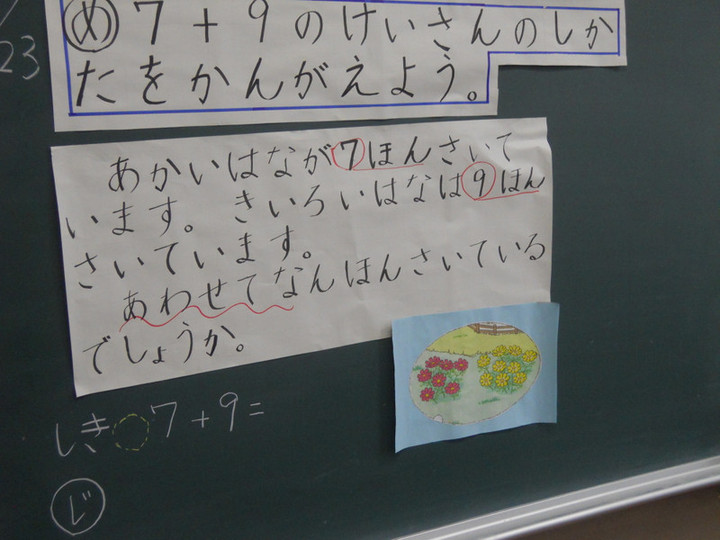 23
め 7+9のけいさんのしか
たをかんがえよう。
あかいはなが7ほんさいて
います。きいろいはなは9ほん
さいています。
あわせてなんほんさいている
でしょうか。
しき 7+9=
じ